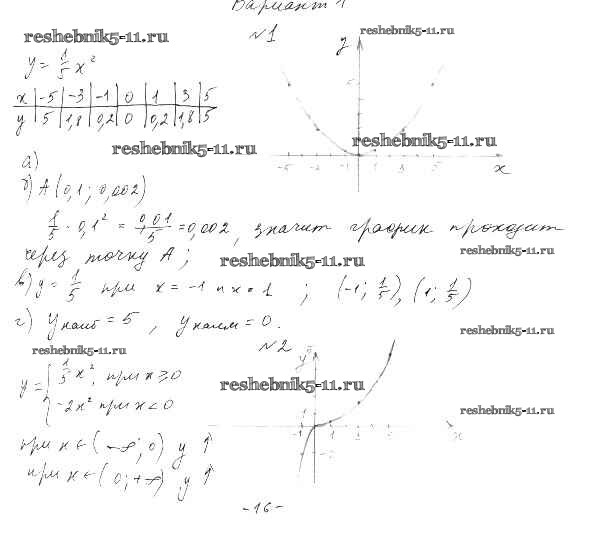 Вариант 1
№1
reshebnik5-11.ru
reshebnik5-11.ru
y = 1/5 x²
x | -5 | -3 | -1 | 0 | 1 | 3 | 5
y | 5 | 1,8 | 0,2 | 0 | 0,2 | 1,8 | 5
y
x
reshebnik5-11.ru
reshebnik5-11.ru
а)
б) A(0,1; 0,002)
1/5 · 0,1² = 0,01/5 = 0,002, значит график проходит
через точку A;
reshebnik5-11.ru
reshebnik5-11.ru
в) y = 1/5 при x = -1 и x = 1 ; (-1; 1/5), (1; 1/5)
г) y наиб = 5, y наим = 0.
reshebnik5-11.ru
reshebnik5-11.ru
№2
y
x
reshebnik5-11.ru
reshebnik5-11.ru
y = { 1/5 x², при x ≥ 0
-2x² при x < 0
при x ∈ (-∞; 0) y ↑
при x ∈ (0; +∞) y ↑
-16-